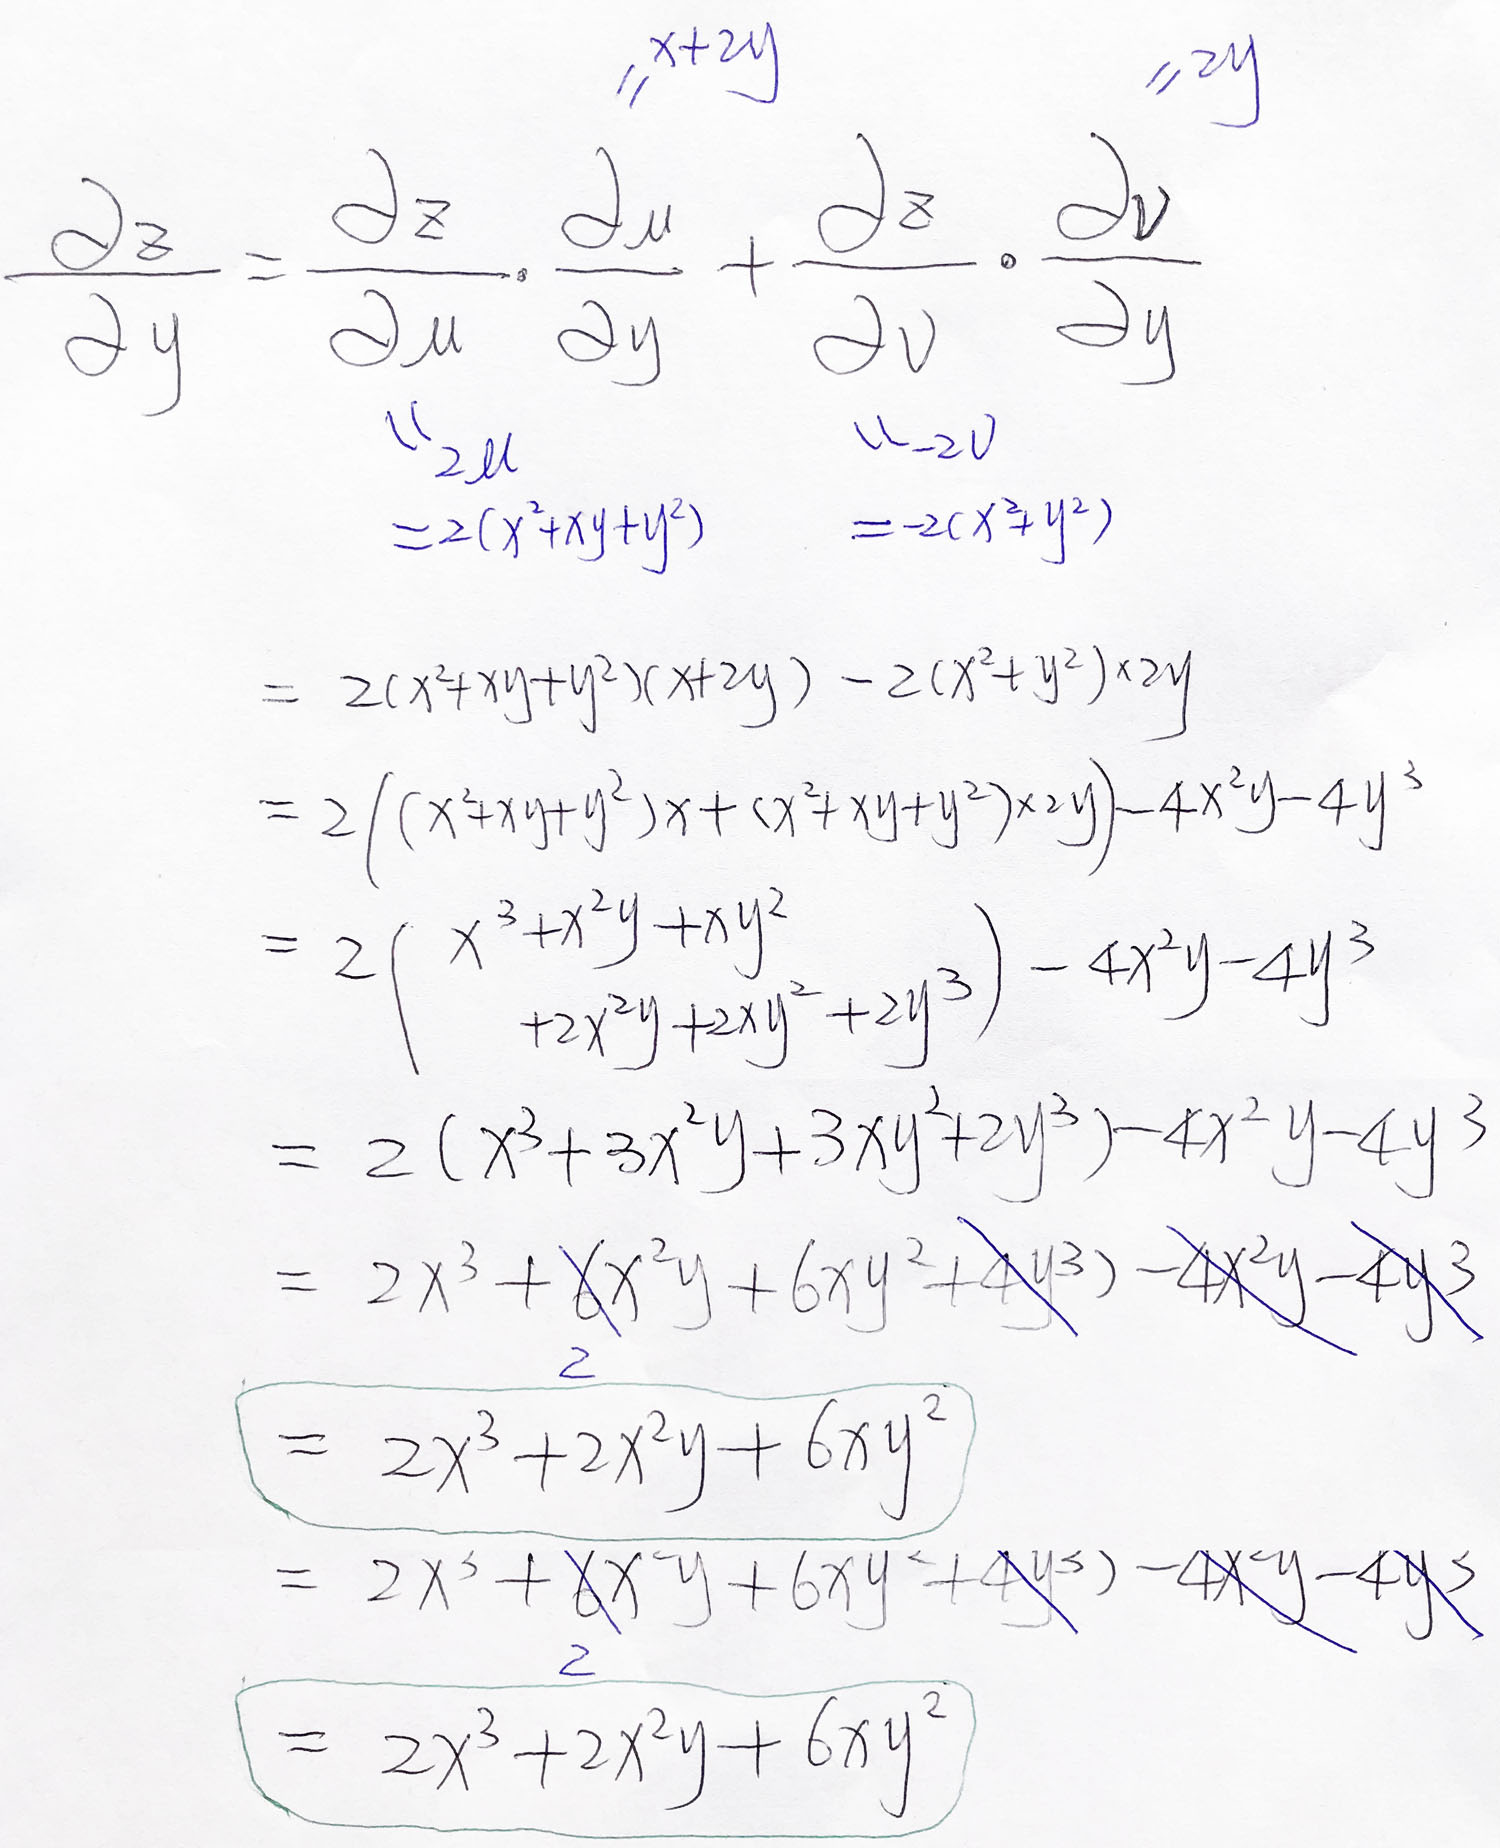 =x+2y =2y
∂z/∂y = ∂z/∂u · ∂u/∂y + ∂z/∂v · ∂v/∂y
=2u =-2v
=2(x²+xy+y²) =-2(x²+y²)
= 2(x²+xy+y²)(x+2y) - 2(x²+y²)×2y
= 2((x²+xy+y²)x + (x²+xy+y²)×2y) - 4x²y - 4y³
= 2(x³+x²y+xy²
+2x²y+2xy²+2y³) - 4x²y - 4y³
= 2(x³+3x²y+3xy²+2y³) - 4x²y - 4y³
= 2x³ + 6x²y + 6xy² + 4y³) - 4x²y - 4y³
2
= 2x³ + 2x²y + 6xy²
= 2x³ + 6x²y + 6xy² + 4y³) - 4x²y - 4y³
2
= 2x³ + 2x²y + 6xy²